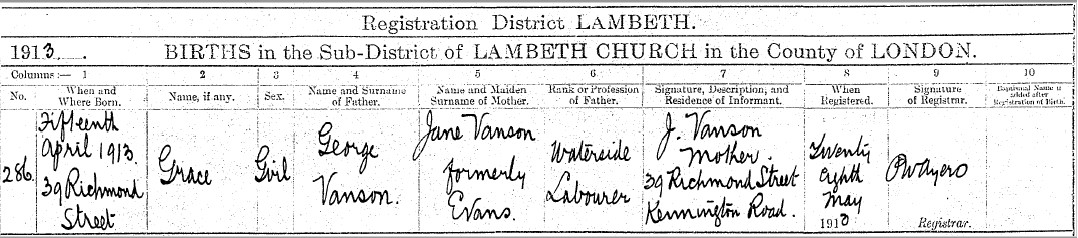 Registration District LAMBETH.
1913. BIRTHS in the Sub-District of LAMBETH CHURCH in the County of LONDON.
Columns:— 1 2 3 4 5 6 7 8 9 10
No. When and Where Born. Name, if any. Sex. Name and Surname of Father. Name and Maiden Surname of Mother. Rank or Profession of Father. Signature, Description, and Residence of Informant. When Registered. Signature of Registrar. Baptismal Name if added after Registration of Birth.
286.
Fifteenth
April 1913.
39 Richmond
Street
Grace
Girl
George
Vanson.
Jane Vanson
formerly
Evans.
Waterside
Labourer
J. Vanson
Mother.
39 Richmond Street
Kennington Road.
Twenty
eighth
May
1913
Registrar.